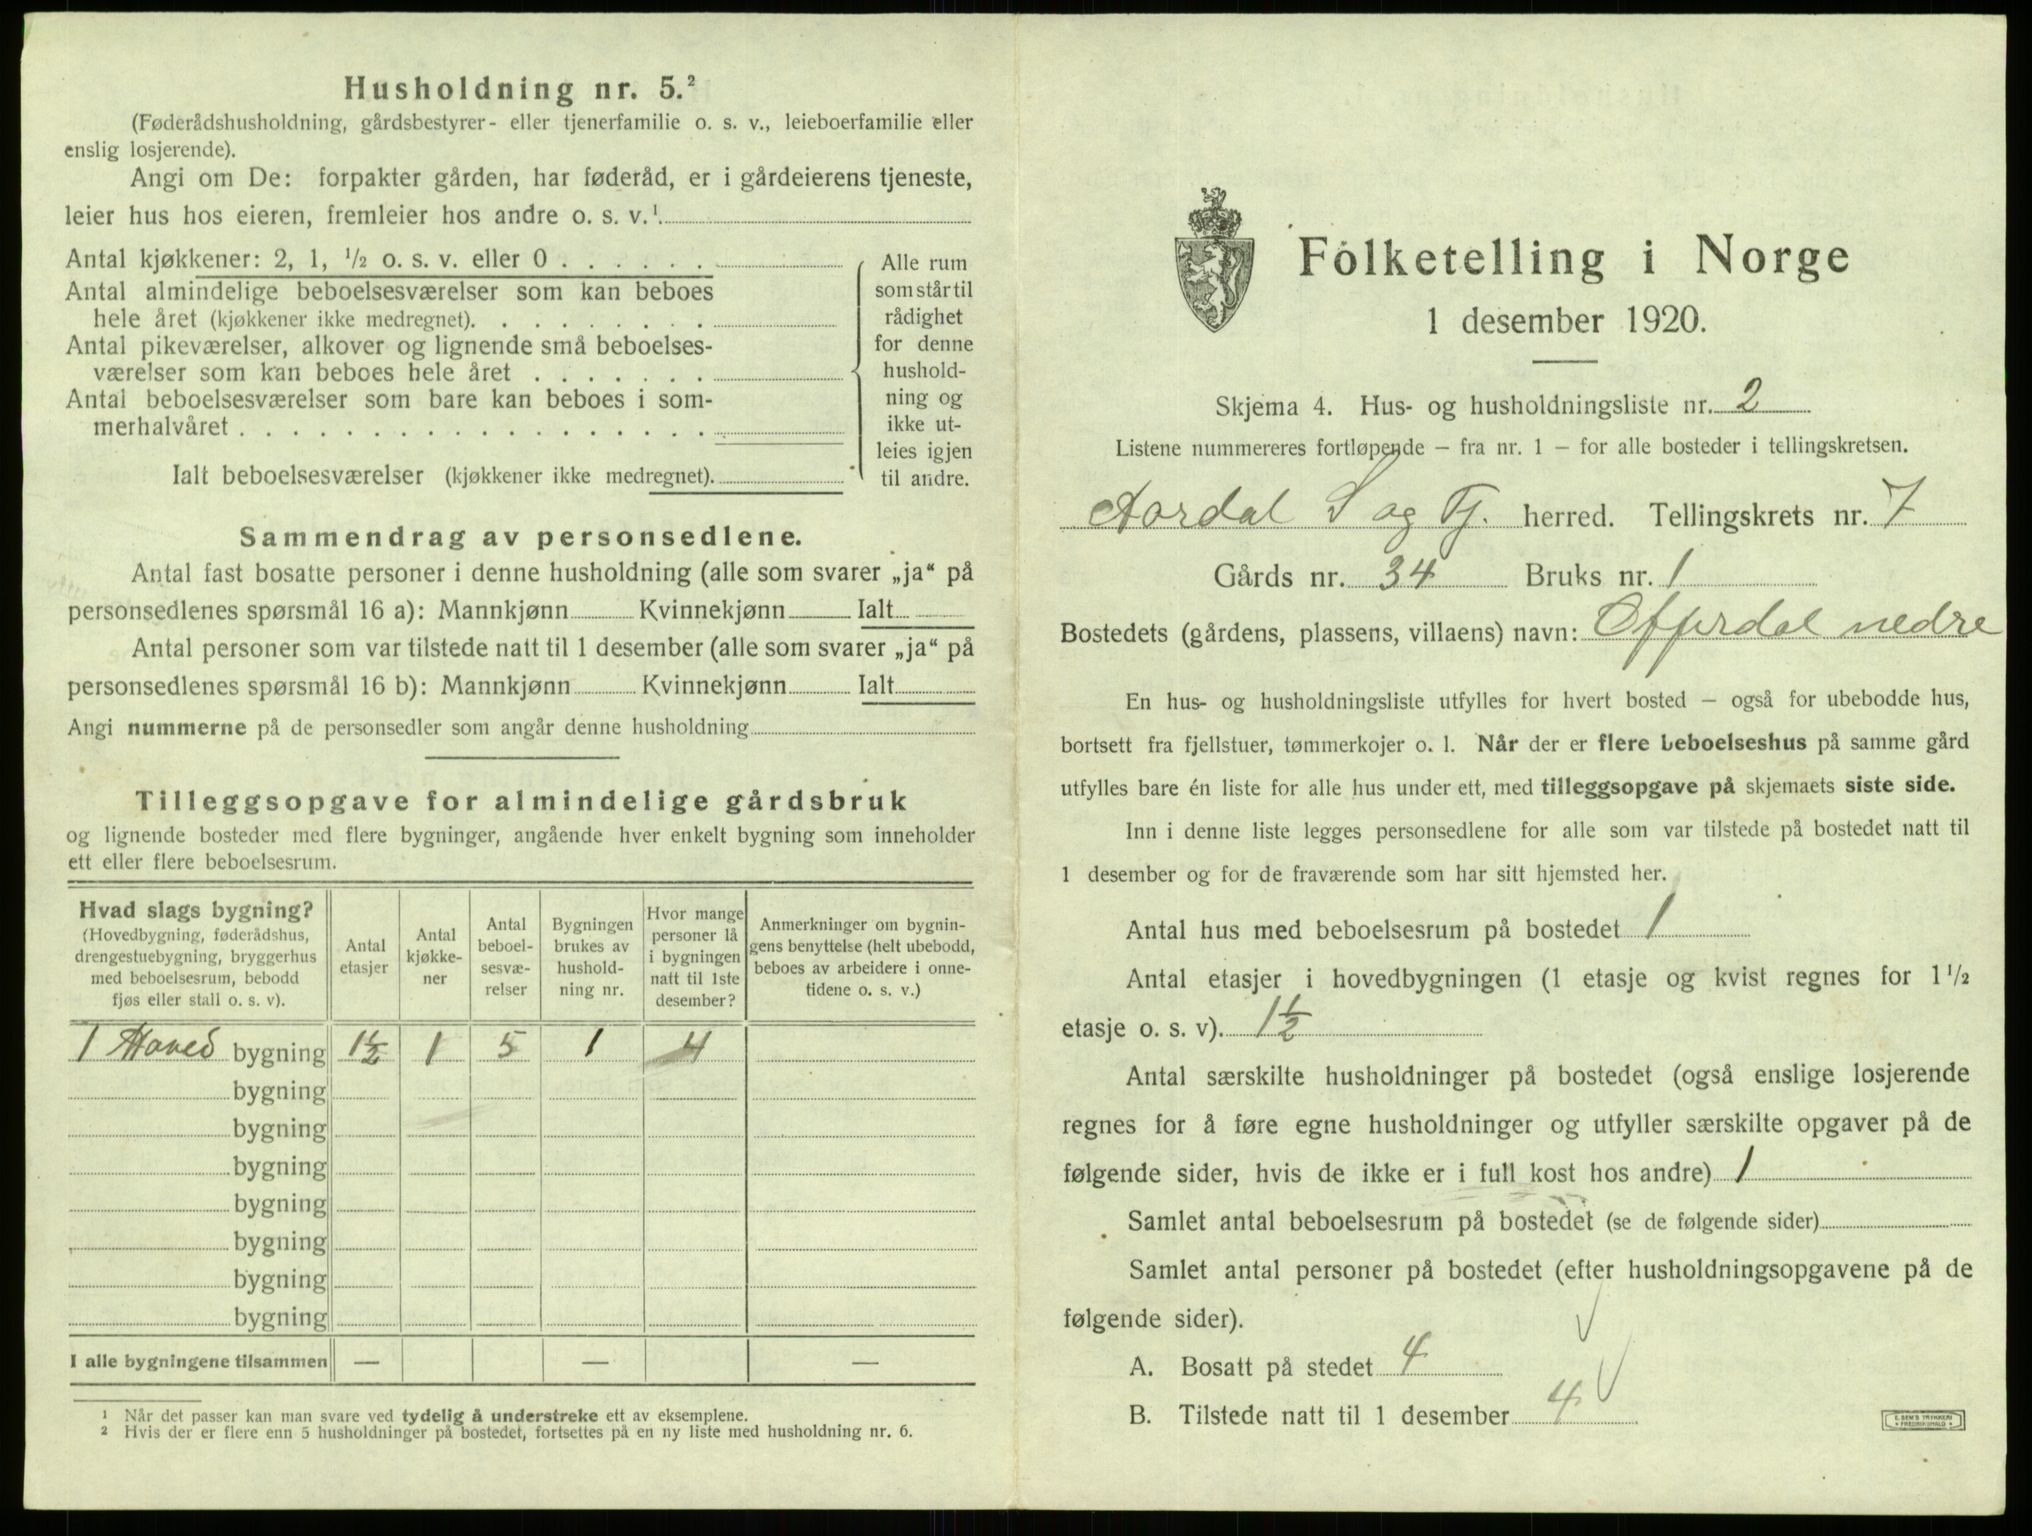 Husholdning nr. 5.²
(Føderådshusholdning, gårdsbestyrer- eller tjenerfamilie o. s. v., leieboerfamilie eller
enslig losjerende).
Angi om De: forpakter gården, har føderåd, er i gårdeierens tjeneste,
leier hus hos eieren, fremleier hos andre o. s. v.¹
Antal kjøkkener: 2, 1, ½ o. s. v. eller 0
Antal almindelige beboelsesværelser som kan beboes
hele året (kjøkkener ikke medregnet).
Antal pikeværelser, alkover og lignende små beboelses-
værelser som kan beboes hele året
Antal beboelsesværelser som bare kan beboes i som-
merhalvåret
Ialt beboelsesværelser (kjøkkener ikke medregnet).
Alle rum
som står til
rådighet
for denne
hushold-
ning og
ikke ut-
leies igjen
til andre.
Sammendrag av personsedlene.
Antal fast bosatte personer i denne husholdning (alle som svarer „ja“ på
personsedlenes spørsmål 16 a): Mannkjønn Kvinnekjønn Ialt
Antal personer som var tilstede natt til 1 desember (alle som svarer „ja“ på
personsedlenes spørsmål 16 b): Mannkjønn Kvinnekjønn Ialt
Angi nummerne på de personsedler som angår denne husholdning
Tilleggsopgave for almindelige gårdsbruk
og lignende bosteder med flere bygninger, angående hver enkelt bygning som inneholder
ett eller flere beboelsesrum.
Hvad slags bygning?
(Hovedbygning, føderådshus,
drengestuebygning, bryggerhus
med beboelsesrum, bebodd
fjøs eller stall o. s. v).
Antal
etasjer
Antal
kjøkke-
ner
Antal
beboel-
sesvæ-
relser
Bygningen
brukes av
hushold-
ning nr.
Hvor mange
personer lå
i bygningen
natt til 1ste
desember?
Anmerkninger om bygnin-
gens benyttelse (helt ubebodd,
beboes av arbeidere i onne-
tidene o. s. v.)
1 Hoved bygning 1½ 1 5 1 4
bygning
bygning
bygning
bygning
bygning
bygning
bygning
I alle bygningene tilsammen — — —
¹ Når det passer kan man svare ved tydelig å understreke ett av eksemplene.
² Hvis der er flere enn 5 husholdninger på bostedet, fortsettes på en ny liste med husholdning nr. 6.
Folketelling i Norge
1 desember 1920.
Skjema 4. Hus- og husholdningsliste nr. 2
Listene nummereres fortløpende — fra nr. 1 — for alle bosteder i tellingskretsen.
Aardal S og Tj. herred. Tellingskrets nr. 7
Gårds nr. 34 Bruks nr. 1
Bostedets (gårdens, plassens, villaens) navn: Offerdal nedre
En hus- og husholdningsliste utfylles for hvert bosted — også for ubebodde hus,
bortsett fra fjellstuer, tømmerkojer o. l. Når der er flere beboelseshus på samme gård
utfylles bare én liste for alle hus under ett, med tilleggsopgave på skjemaets siste side.
Inn i denne liste legges personsedlene for alle som var tilstede på bostedet natt til
1 desember og for de fraværende som har sitt hjemsted her.
Antal hus med beboelsesrum på bostedet 1
Antal etasjer i hovedbygningen (1 etasje og kvist regnes for 1½
etasje o. s. v). 1½
Antal særskilte husholdninger på bostedet (også enslige losjerende
regnes for å føre egne husholdninger og utfyller særskilte opgaver på de
følgende sider, hvis de ikke er i full kost hos andre) 1
Samlet antal beboelsesrum på bostedet (se de følgende sider)
Samlet antal personer på bostedet (efter husholdningsopgavene på de
følgende sider).
A. Bosatt på stedet 4
B. Tilstede natt til 1 desember 4
E. SEM'S TRYKKERI
• FREDRIKSHALD •